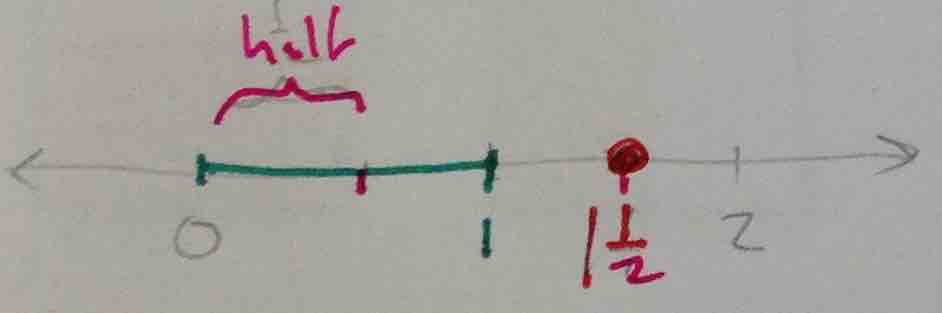 half
0 1 1 1/2 2